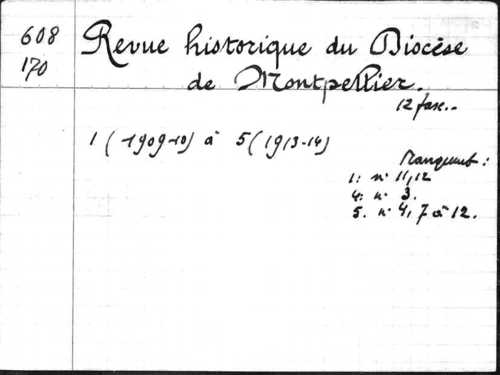 608
170
Revue historique du Diocèse
de Montpellier.
12 fasc..
1 (1909-10) à 5 (1913-14)
Manquent :
1: n° 11, 12
4: n° 3.
5. n° 4, 7 à 12.